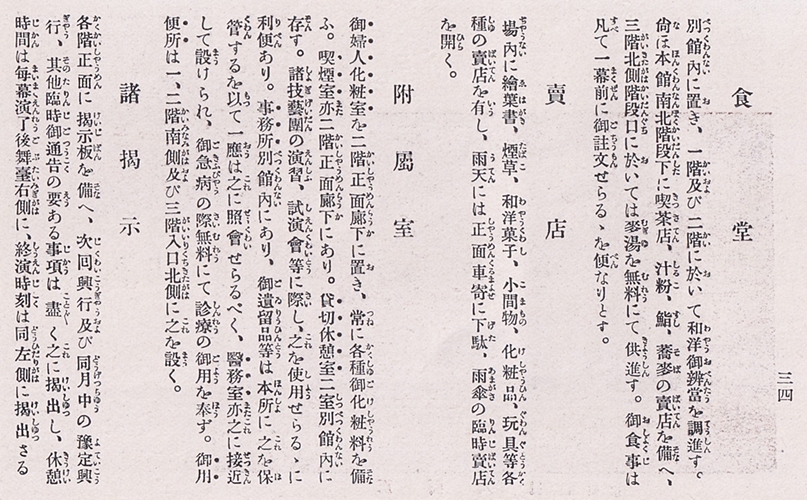 三四
食堂
別館內に置き、一階及び二階に於いて和洋御辨當を調進す。
尙ほ本館南北階段下に喫茶店、汁粉、鮨、蕎麥の賣店を備へ、
三階北側階段口に於いては麥湯を無料にて供進す。御食事は
凡て一幕前に御註文せらるゝを便なりとす。
賣店
場內に繪葉書、煙草、和洋菓子、小間物、化粧品、玩具等各
種の賣店を有し、雨天には正面車寄に下駄、雨傘の臨時賣店
を開く。
附屬室
御婦人化粧室を二階正面廊下に置き、常に各種御化粧料を備
ふ。喫煙室亦二階正面廊下にあり。貸切休憩室二室別館內に
存す。諸技藝團の演習、試演會等に際し、之を使用せらるゝに
利便あり。事務所別館內にあり、御遺留品等は本所に之を保
管するを以て一應は之に照會せらるべく、醫務室亦之に接近
して設けられ、御急病の際無料にて診療の御用を奉ず。御用
便所は一、二階南側及び三階入口北側に之を設く。
諸揭示
各階正面に揭示板を備へ、次回興行及び同月中の豫定興
行、其他臨時御通告の要ある事項は盡く之に揭出し、休憩
時間は每幕演了後舞臺右側に、終演時刻は同左側に揭出さる